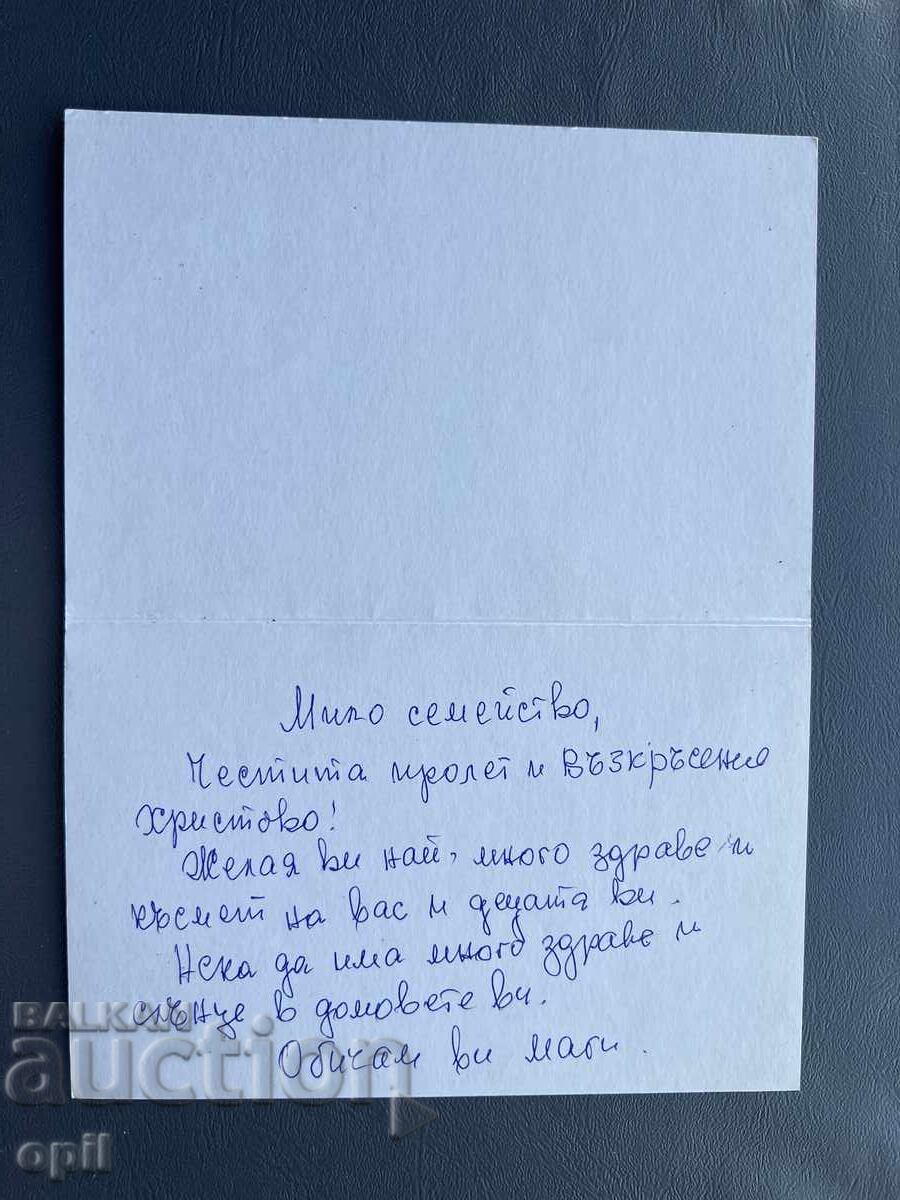 Мило семейство,
Честита пролет и Възкръсение
Христово!
Желая ви най, много здраве и
късмет на вас и децата ви.
Нека да има много здраве и
слънце в домовете ви.
Обичам ви маги.
BALKAN
auction
opil